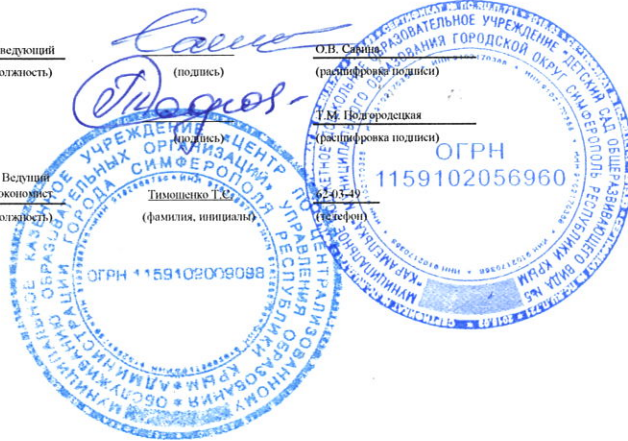 ведующий
О.В. Савина
олжность)
(подпись)
(расшифровка подписи)
Т.М. Подгородецкая
(подпись)
(расшифровка подписи)
Ведущий
экономист
Тимошенко Т.С.
62-03-49
олжность)
(фамилия, инициалы)
(телефон)
МУНИЦИПАЛЬНОЕ КАЗЕННОЕ УЧРЕЖДЕНИЕ «ЦЕНТР ПО ЦЕНТРАЛИЗОВАННОМУ
ОБСЛУЖИВАНИЮ ОБРАЗОВАТЕЛЬНЫХ ОРГАНИЗАЦИЙ» УПРАВЛЕНИЯ ОБРАЗОВАНИЯ
АДМИНИСТРАЦИИ ГОРОДА СИМФЕРОПОЛЯ РЕСПУБЛИКИ КРЫМ
ОГРН 1159102009098
ОБРАЗОВАТЕЛЬНОЕ УЧРЕЖДЕНИЕ "ДЕТСКИЙ САД ОБЩЕРАЗВИВАЮЩЕГО ВИДА №5
"КАРАМЕЛЬКА" МУНИЦИПАЛЬНОГО ОБРАЗОВАНИЯ ГОРОДСКОЙ ОКРУГ СИМФЕРОПОЛЬ РЕСПУБЛИКИ КРЫМ
ОГРН
1159102056960